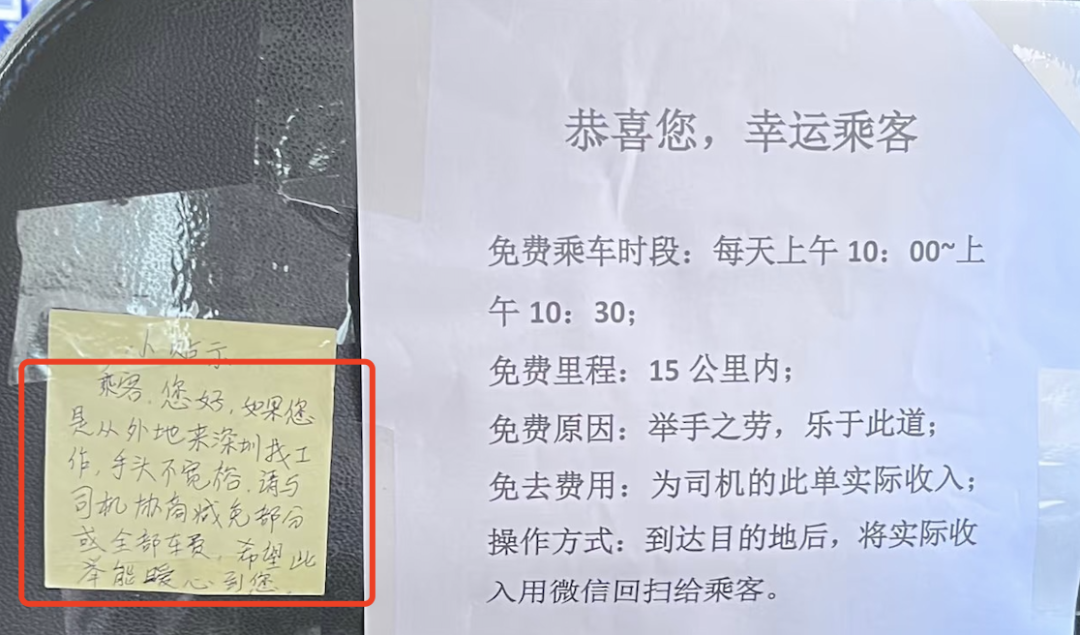 小贴示
乘客,您好,如果您
是从外地来深圳找工
作,手头不宽裕,请与
司机协商减免部分
或全部车费,希望此
举能暖心到您.
恭喜您，幸运乘客
免费乘车时段：每天上午 10：00~上
午 10：30；
免费里程：15 公里内；
免费原因：举手之劳，乐于此道；
免去费用：为司机的此单实际收入；
操作方式：到达目的地后，将实际收
入用微信回扫给乘客。